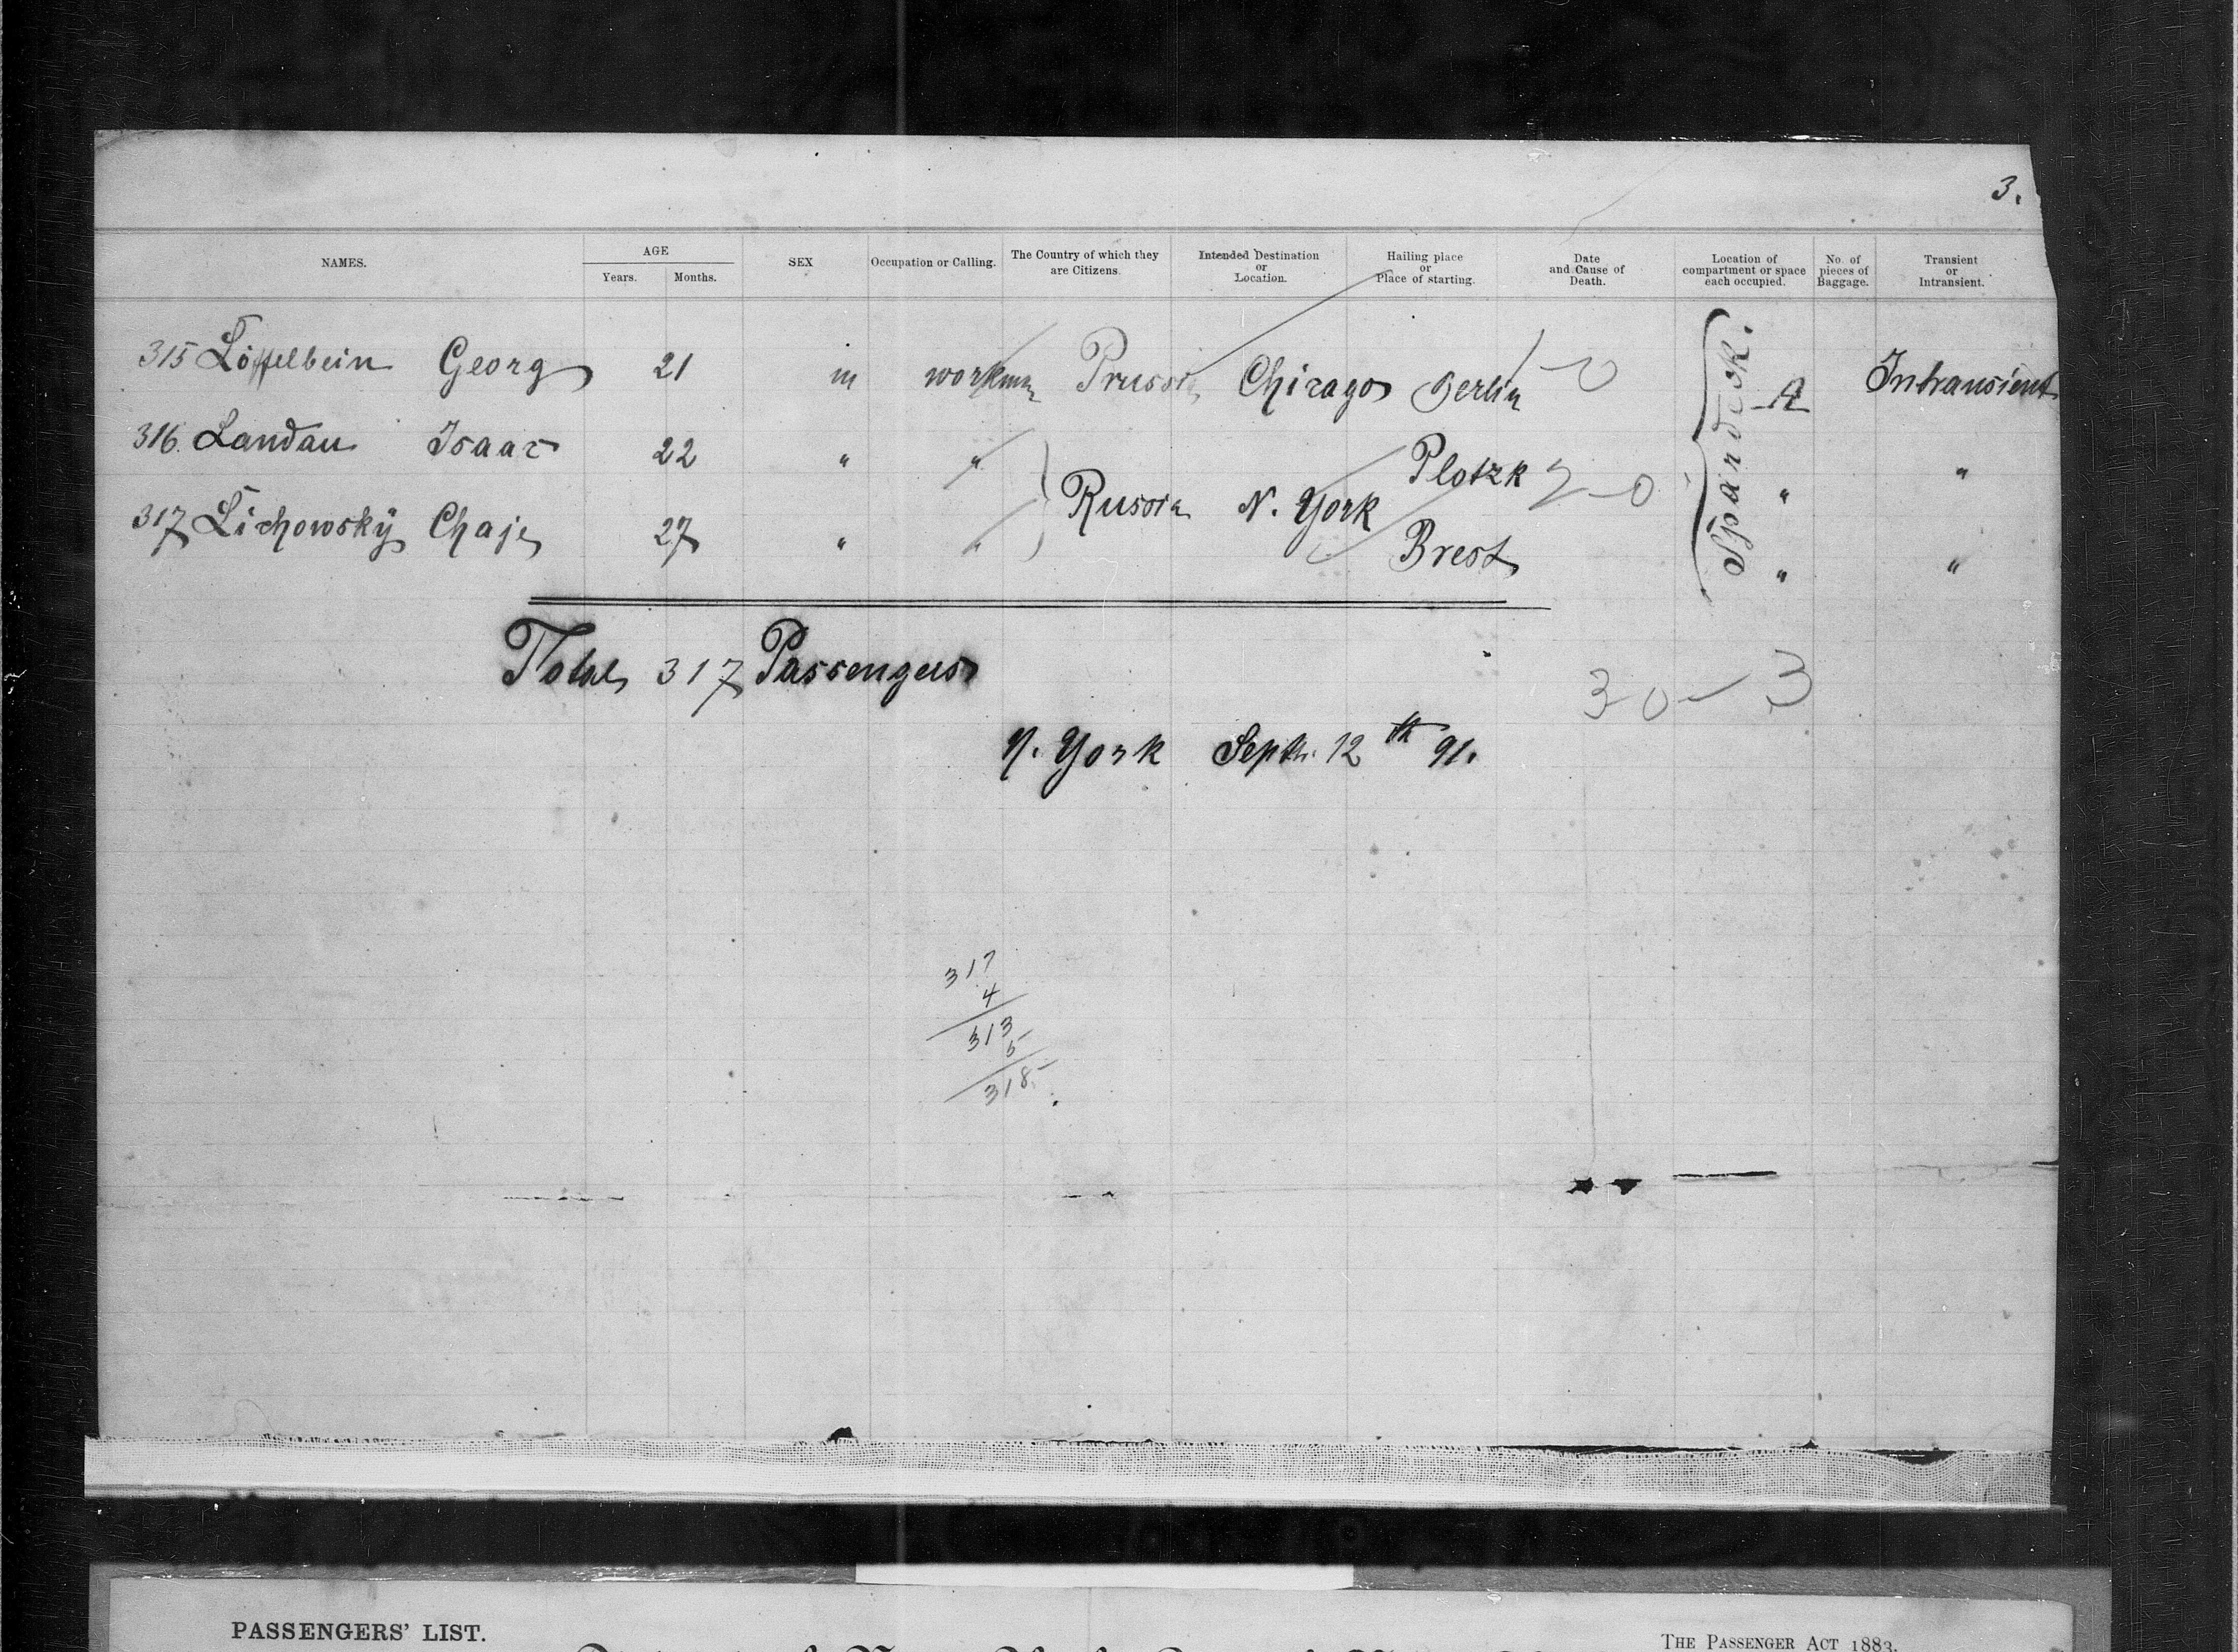 3.
NAMES. AGE Years. Months. SEX Occupation or Calling. The Country of which they are Citizens. Intended Destination or Location. Hailing place or Place of starting. Date and Cause of Death. Location of compartment or space each occupied. No. of pieces of Baggage. Transient or Intransient.
315 Löffelbein Georg 21 m workman Prussia Chicago Berlin A Intransient
316. Landau Isaac 22 " " Plotzk 2-0 " "
Russia N. York
317 Lichowsky Chaje 27 " " Brest " "
Total 317 Passengers
30-3
N. York Septb. 12th 91.
317
4
313
5
318
PASSENGERS' LIST.
THE PASSENGER ACT 1883.